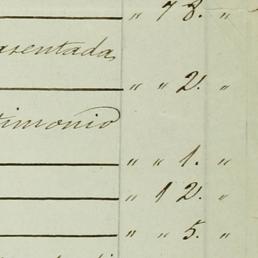 " 78. "
asentada
" " 2. "
timonio
" " 1. "
" 12. "
" " 5. "